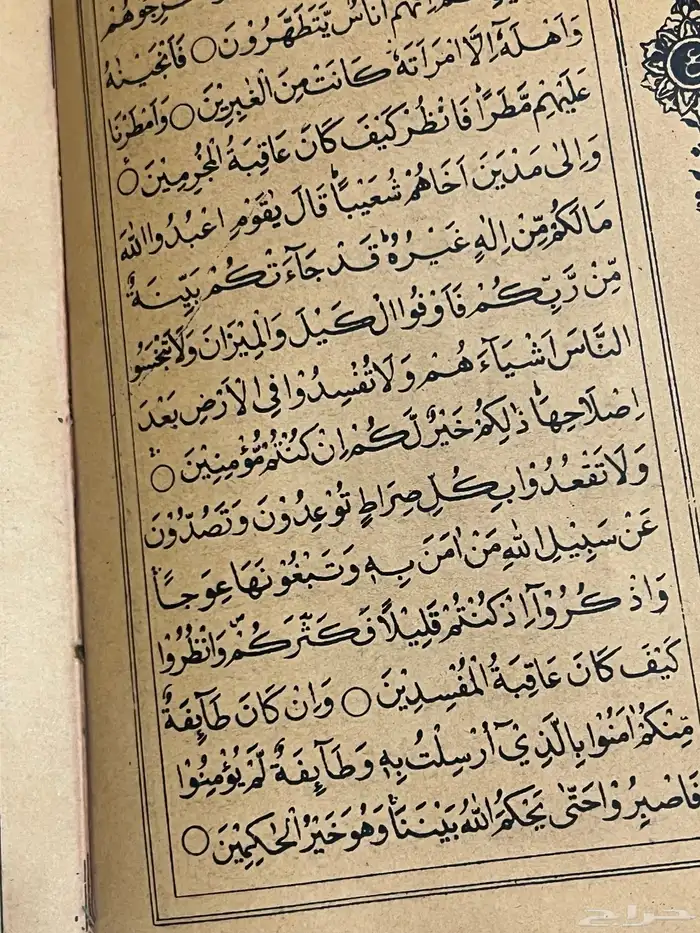 اَهْلَهٗٓ
اُنَاسٌ يَّتَطَهَّرُوْنَ ○ فَاَنْجَيْنٰهُ
وَاَهْلَهٗٓ اِلَّا امْرَاَتَهٗ كَانَتْ مِنَ الْغٰبِرِيْنَ ○ وَاَمْطَرْنَا
عَلَيْهِمْ مَّطَرًا فَانْظُرْ كَيْفَ كَانَ عَاقِبَةُ الْمُجْرِمِيْنَ ○
وَاِلٰى مَدْيَنَ اَخَاهُمْ شُعَيْبًا قَالَ يٰقَوْمِ اعْبُدُوا اللّٰهَ
مَالَكُمْ مِّنْ اِلٰهٍ غَيْرُهٗ قَدْ جَآءَتْكُمْ بَيِّنَةٌ
مِّنْ رَّبِّكُمْ فَاَوْفُوا الْكَيْلَ وَالْمِيْزَانَ وَلَا تَبْخَسُوا
النَّاسَ اَشْيَآءَهُمْ وَلَا تُفْسِدُوْا فِى الْاَرْضِ بَعْدَ
اِصْلَاحِهَا ذٰلِكُمْ خَيْرٌ لَّكُمْ اِنْ كُنْتُمْ مُّؤْمِنِيْنَ ○
وَلَا تَقْعُدُوْا بِكُلِّ صِرَاطٍ تُوْعِدُوْنَ وَتَصُدُّوْنَ
عَنْ سَبِيْلِ اللّٰهِ مَنْ اٰمَنَ بِهٖ وَتَبْغُوْنَهَا عِوَجًا
وَاذْكُرُوْٓا اِذْ كُنْتُمْ قَلِيْلًا فَكَثَّرَكُمْ وَانْظُرُوْا
كَيْفَ كَانَ عَاقِبَةُ الْمُفْسِدِيْنَ ○ وَاِنْ كَانَ طَآئِفَةٌ
مِّنْكُمْ اٰمَنُوْا بِالَّذِيْٓ اُرْسِلْتُ بِهٖ وَطَآئِفَةٌ لَّمْ يُؤْمِنُوْا
فَاصْبِرُوْا حَتّٰى يَحْكُمَ اللّٰهُ بَيْنَنَا وَهُوَ خَيْرُ الْحٰكِمِيْنَ ○
حراج